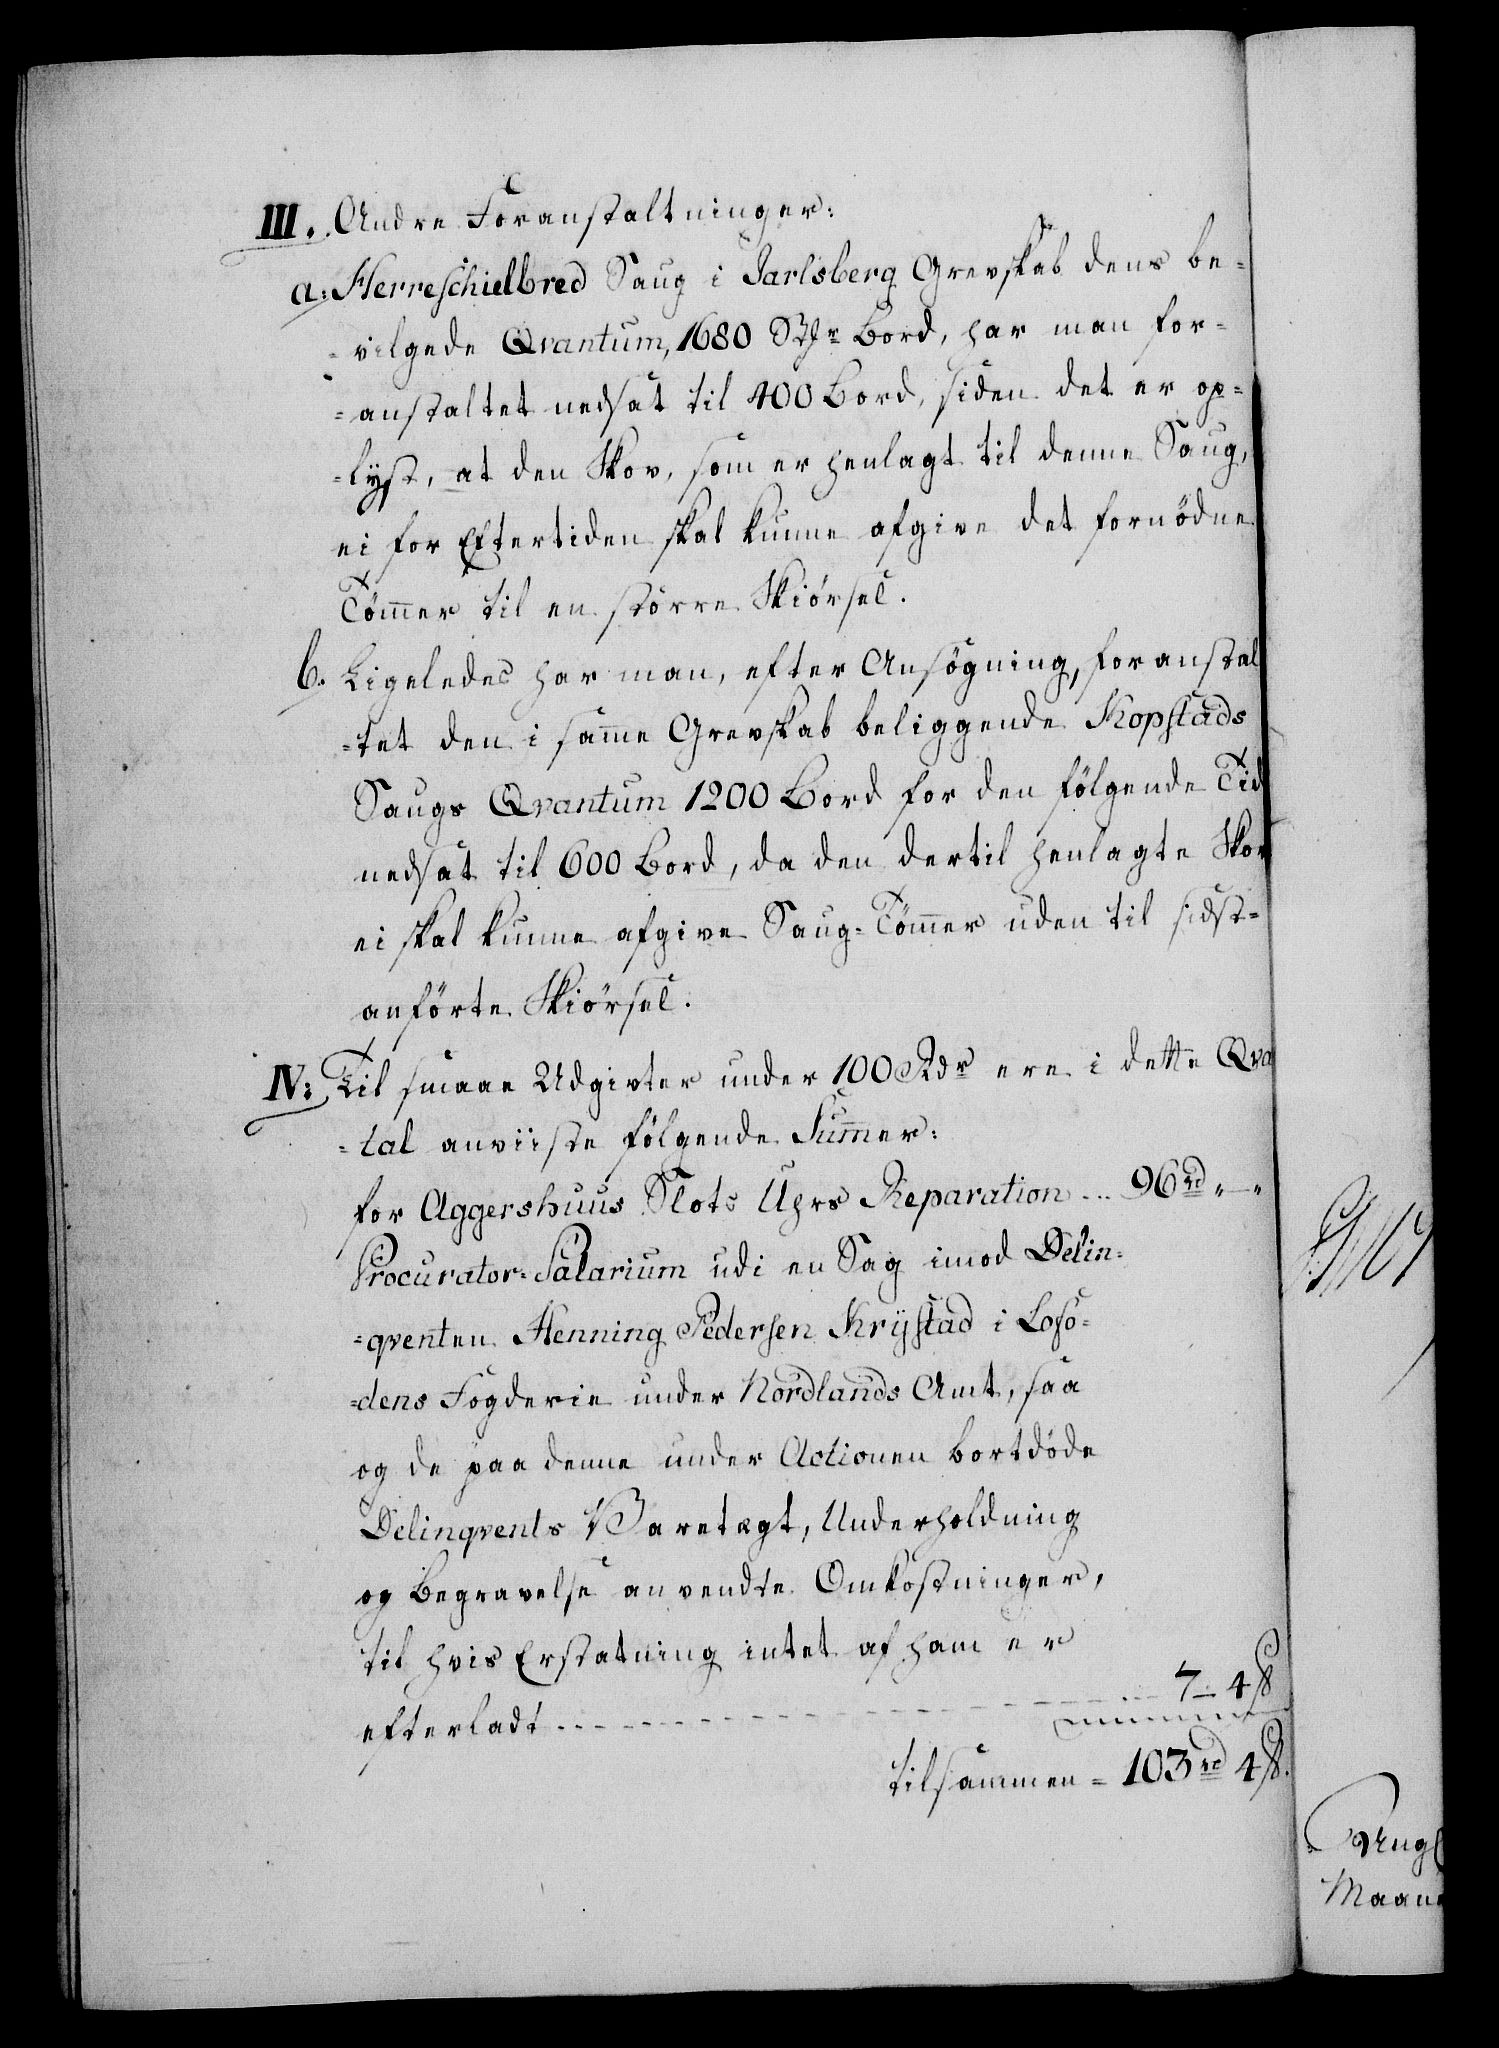 III. Andre Foranstaltninger:
a: Herreschielbred Saug i Jarlsberg Grevskab dens be-
-vilgede Qvantum, 1680 Bord, har man for-
=anstaltet nedsat til 400 Bord, siden det er op=
=lyst, at den Skov, som er henlagt til denne Saug,
ei for Eftertiden skal kunne afgive det fornödne
Töm̄er til en större Skiörsel.
b. Ligeledes har man, efter Ansögning, foranstal
=tet den i sam̄e Grevskab beliggende Kopstads
Saugs Qvantum 1200 Bord for den fölgende Tid
nedsat til 600 Bord, da den dertil henlagte Skov
ei skal kunne afgive Saug=Töm̄er uden til sidst=
anförte Skiörsel.
IV: Til smaae Udgivter under 100 Rdr ere i dette Qva
=tal anviiste fölgende Sum̄er:
for Aggershuus Slots Uhrs Reparation ... 96 rd „—„
Procurator=Salarium udi en Sag imod Delin=
=qventen Henning Pedersen Krÿstad i Lofo=
=dens Fogderie under Nordlands Amt, saa
og de paa denne under Actionen bortdöde
Delinqvents Varetægt, Underholdning
og Begravelse anvendte Omkostninger,
til hvis Erstatning intet af ham er
efterladt ... 7 – 4 ß
tilsammen = 103 rd 4 ß.